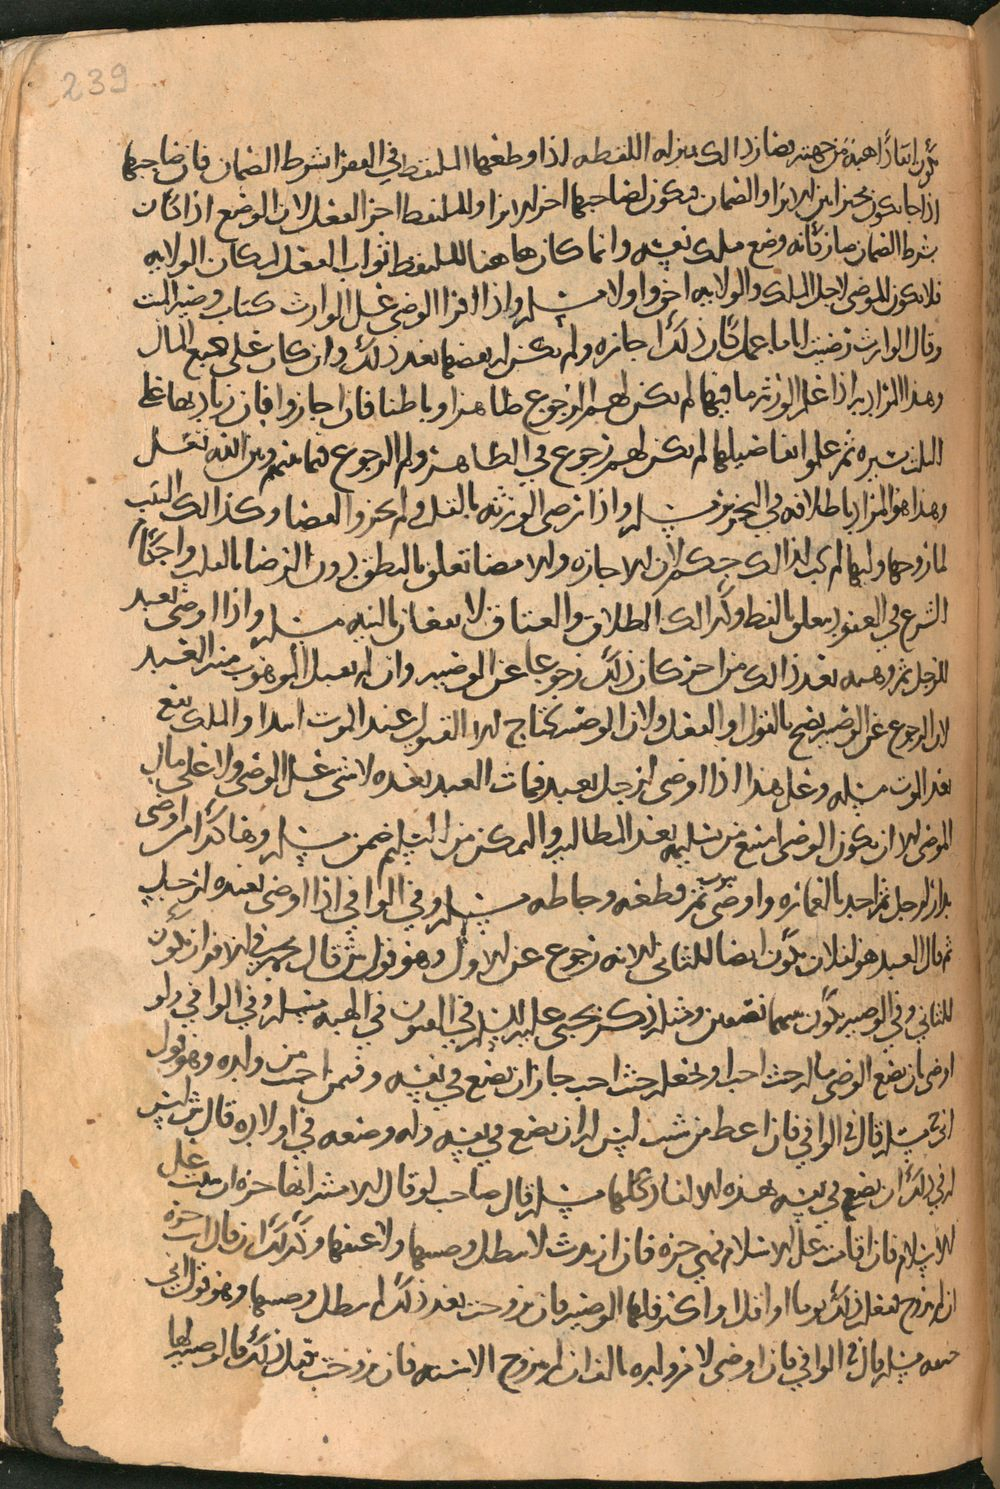 239
تكون ابتدا هبة من جهته فصار ذالك بمنزلة اللقطه اذا وضعها الملتقط في الفقرا بشرط الضمان فان صاحبها
اذا جا يكون مخيرا بين الابرا والضمان فيكون لصاحبها اجر الابرا وللملتقط اجر الفعل لان الوضع اذا كان
بشرط الضمان صار كانه وضع ملك نفسه وانما كان هاهنا للملتقط ثواب الفعل لمكان الولايه
فلا تكون للموصي لاجل الملك والولايه اخرى اولا مسله واذا اقرا الوصي على الوارث كتاب وصية الميت
وقال الوارث رضيت انا ما عمل كان ذلك اجازه ولم يكن له نقضها بعد ذلك وان كان على جميع المال
وهذا المراد به اذا علم الورثه ما فيها لم يكن لهم الرجوع ظاهرا وباطنا فان اجازوا فان زيادتها على
الثلث يسيره ثم علموا تفاصيلها لم يكن لهم رجوع في الظاهر ولهم الرجوع فيما بينهم وبين الله تعالى
وهذا هو المراد باطلاقه في التحرير مسله واذا رضي الورثه بالقلب ولم يجيزوا لفظا وكذالك الثيب
لما زوجها وليها لم يجب لذالك حكم لان الاجازه والامضا تعلق بالنطق دون الرضا بالقلب واحكام
الشرع في العقود تتعلق باللفظ وكذالك الطلاق والعتاق لا يقعان بالنيه مسله واذا اوصى بعبد
لرجل ثم وهبه بعد ذالك من اخر كان ذلك رجوعا عن الوصيه وان لم يقبل الموهوب منه العبد
لان الرجوع عن الوصيه يصح بالقول او الفعل ولان الوصيه تحتاج الى القبول عند الموت ابتدا والملك يقع
بعد الموت مسله وعلى هذا اذا اوصى لرجل بعبد فمات العبد بعده لا شي على الوصي ولا على مال
الموصي الا ان يكون الوصي امتنع من تسليمه بعد المطالبه والتمكن من التسليم ضمن مسله وهاكذا من اوصى
بدار لرجل ثم اخربه بالعماره او اوصى بثوب ثم قطعه وخاطه مسله وفي الوافي اذا اوصى بعبده لرجل
ثم قال العبد هو لفلان يكون ايضا للثاني لانه رجوع عن الاول وهو قول ش قال محمد في الاقرار يكون
للثاني وفي الوصيه يكون بينهما نصفين ومثله ذكر يحيى عليه السلم في الفنون في الهبه مسله وفي الوافي ولو
اوصى بان يضع الوصي ماله حيث احب او يجعله حيث احب جاز ان يضع في نفسه وفيمن احب من ولده وهو قول
ابي ح مسله قال في الوافي فان اعط من شيت ليس له ان يضع في نفسه وله وضعه في اولاده قال ش ليس
له في ذلك ان يضع في نفسه هذه الالفاظ كلها مسله قال صاحب لو قال لامته انها حره ان ثبتت على
الاسلام فان اقامت على الاسلام فهي حره فان ارتدت لا تبطل وصيتها ولا عتقها وكذلك ان قال انت حره
ان لم تزوج تفعل ذلك يوما او اقل او اكثر فلها الوصيه فان تزوجت بعد ذلك لم تبطل وصيتها وهو قول ابي
حنيفه مسله قال في الوافي فان اوصى لام ولده بالف ان لم تزوج الا سنه فان تزوجت قبل ذلك فالوصيه لها